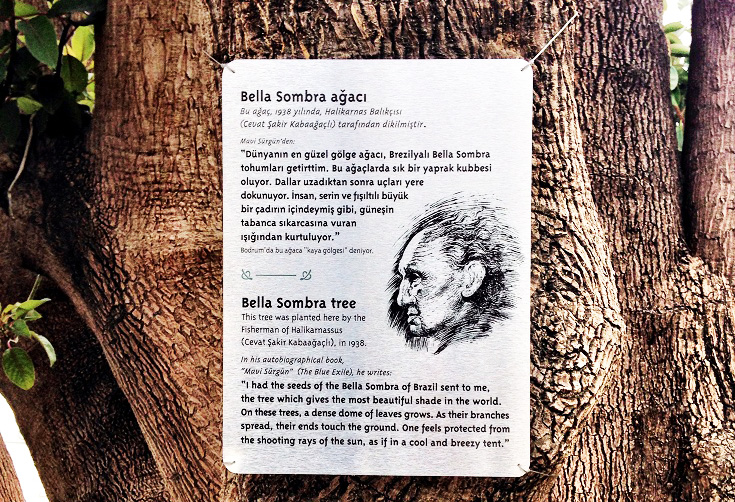 Bella Sombra ağacı
Bu ağaç, 1938 yılında, Halikarnas Balıkçısı
(Cevat Şakir Kabaağaçlı) tarafından dikilmiştir.
Mavi Sürgün'den:
"Dünyanın en güzel gölge ağacı, Brezilyalı Bella Sombra
tohumları getirttim. Bu ağaçlarda sık bir yaprak kubbesi
oluyor. Dallar uzadıktan sonra uçları yere
dokunuyor. İnsan, serin ve fışıltılı büyük
bir çadırın içindeymiş gibi, güneşin
tabanca sıkarcasına vuran
ışığından kurtuluyor."
Bodrum'da bu ağaca "kaya gölgesi" deniyor.
Bella Sombra tree
This tree was planted here by the
Fisherman of Halikarnassus
(Cevat Şakir Kabaağaçlı), in 1938.
In his autobiographical book,
"Mavi Sürgün" (The Blue Exile), he writes:
"I had the seeds of the Bella Sombra of Brazil sent to me,
the tree which gives the most beautiful shade in the world.
On these trees, a dense dome of leaves grows. As their branches
spread, their ends touch the ground. One feels protected from
the shooting rays of the sun, as if in a cool and breezy tent."